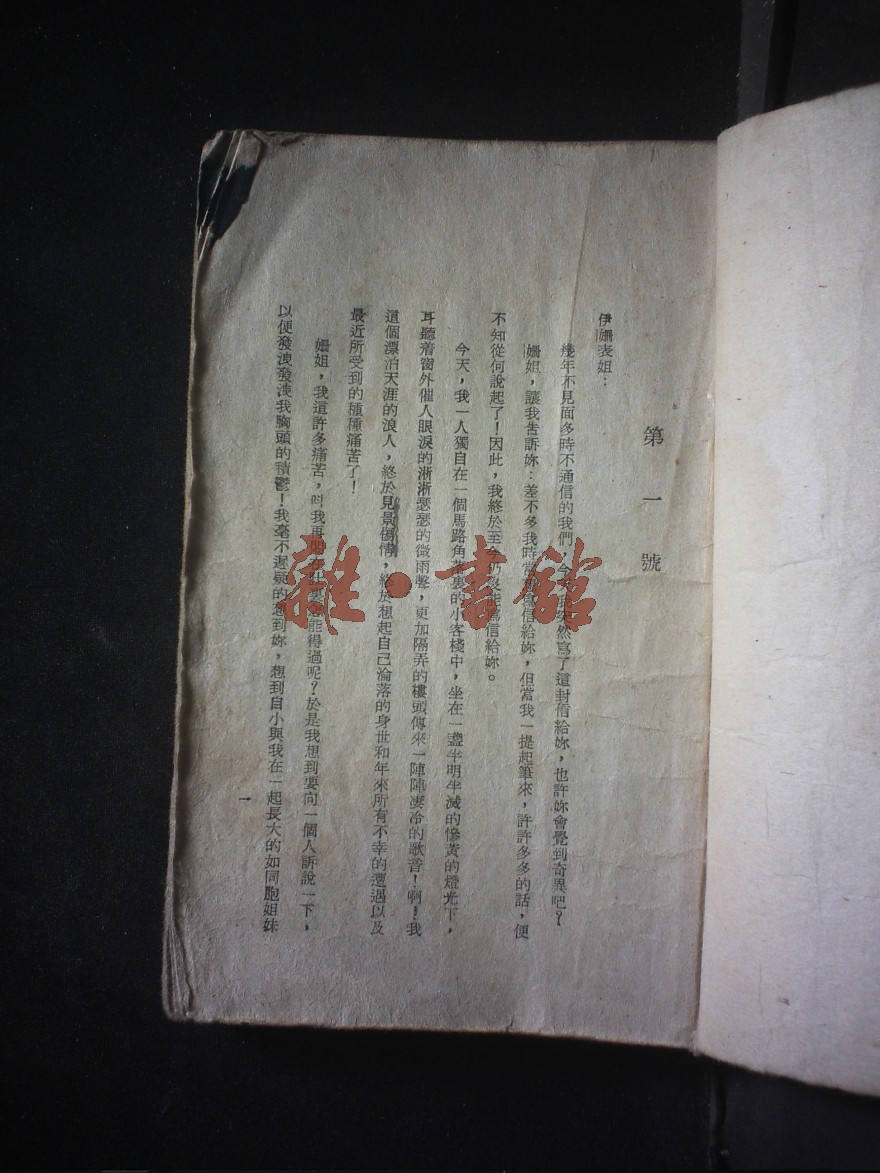 第一號
伊姍表姐：
幾年不見面多時不通信的我們，今天我突然寫了這封信給妳，也許妳會覺到奇異吧？
姍姐，讓我告訴妳：差不多我時常想寫信給妳，但當我一提起筆來，許許多多的話，便
不知從何說起了！因此，我終於至今仍沒能寫信給妳。
今天，我一人獨自在一個馬路角落裏的小客棧中，坐在一盞半明半滅的慘黃的燈光下，
耳聽着窗外催人眼淚的淅淅瑟瑟的微雨聲，更加隔弄的樓頭傳來一陣陣凄冷的歌音！啊！我
這個漂泊天涯的浪人，終於見景傷情，終於想起自己淪落的身世和年來所有不幸的遭遇以及
最近所受到的種種痛苦了！
姍姐，我這許多痛苦，叫我再悶在肚裏怎能得過呢？於是我想到要向一個人訴說一下，
以便發洩發洩我胸頭的積鬱！我毫不遲疑的想到妳，想到自小與我在一起長大的如同胞姐妹
一
雜·書館